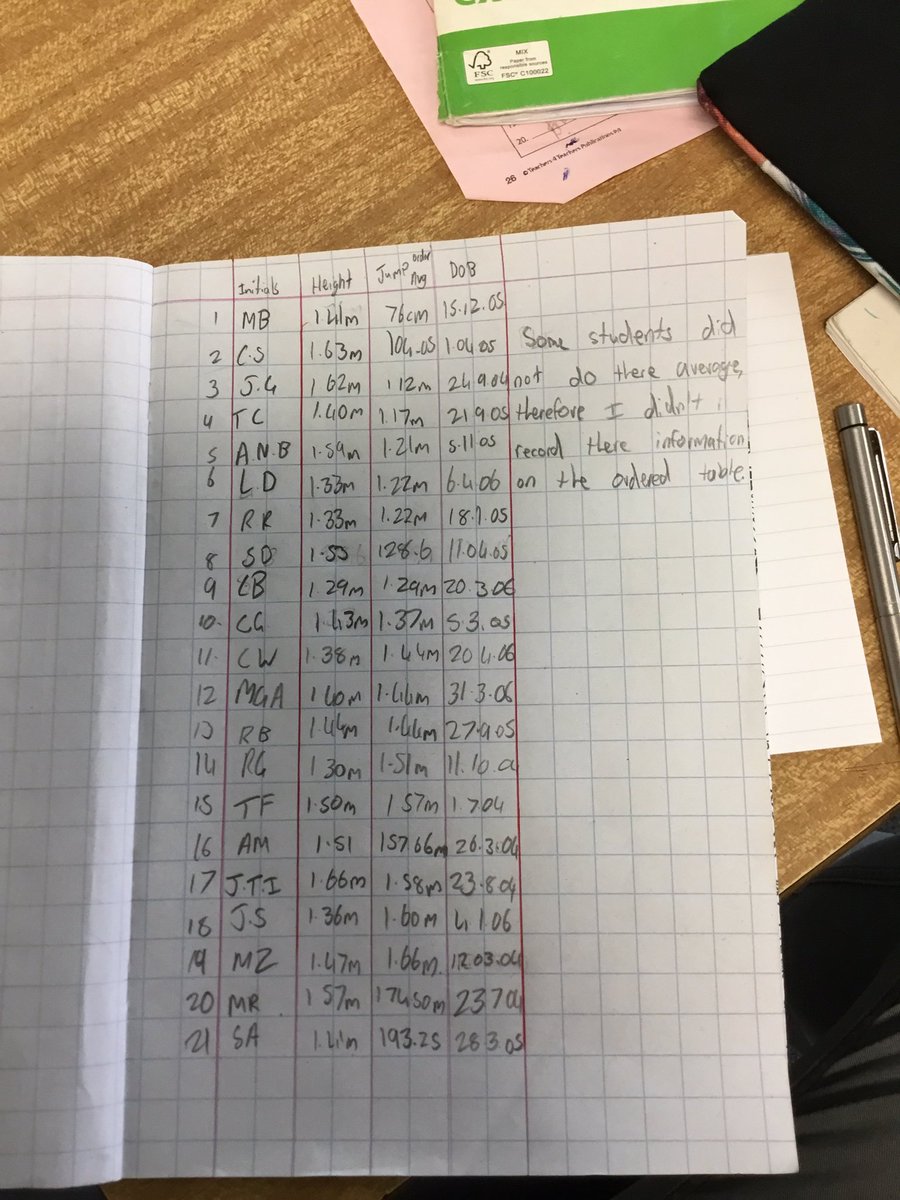 MIX
Paper from
responsible sources
FSC
FSC® C100022
20.
26 © Teachers 4 Teachers Publications
Initials Height Jump order Avg DOB
1 MB 1.41m 76cm 15.12.05
2 C.S 1.63m 104.05 1.04 05
3 J.G 1 62m 1 12m 24 9.04
4 TC 1.40m 1.17m 21 9.05
5 A.N.B 1.59m 1.21m 5.11.05
6 L.D 1.33m 1.22m 6.4.06
7 RR 1.33m 1.22m 18.1.05
8 SD 1.55 128.6 11.04.05
9 1.29m 1.29m 20.3.06
10. CG 1.43m 1.37m 5.3.05
11. CW 1.38m 1.44m 20 4.06
12 MGA 1.40m 1.44m 31.3.06
13 RB 1.44m 1.44m 27.9.05
14 RG 1 30m 1.51m 11.10.
15 TF 1.50m 1 57m 1.7.04
16 AM 1.51 157.66m 26.3.04
17 J.T.I 1.66m 1.58m 23.8.04
18 J.S 1.36m 1.60m 4.1.06
19 MZ 1.47m 1.66m. 12.03.04
20 MR 1 57m 174.50m 23 7 04
21 SA 1.41m 193.25 28 3.05
Some students did
not do there average,
therefore I didn't
record there information
on the ordered table.